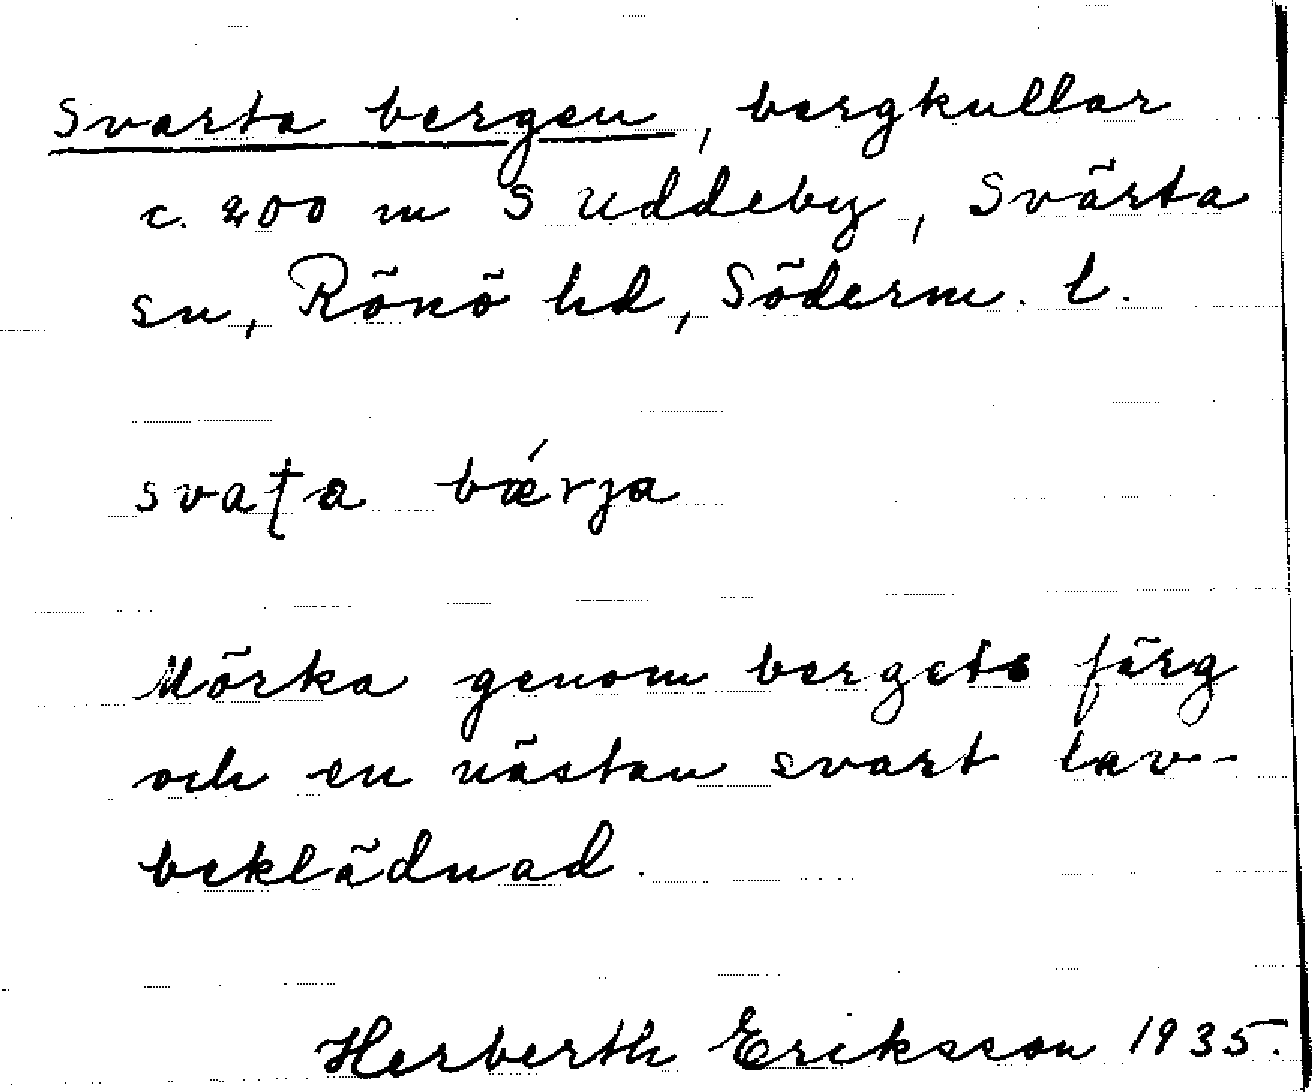 Svarta bergen, bergkullar
c. 200 m S Uddeby, Svärta
sn, Rönö hd, Söderm. l.
svaʈa bǽrja
Mörka genom bergets färg
och en nästan svart lav-
beklädnad.
Herberth Eriksson 1935.